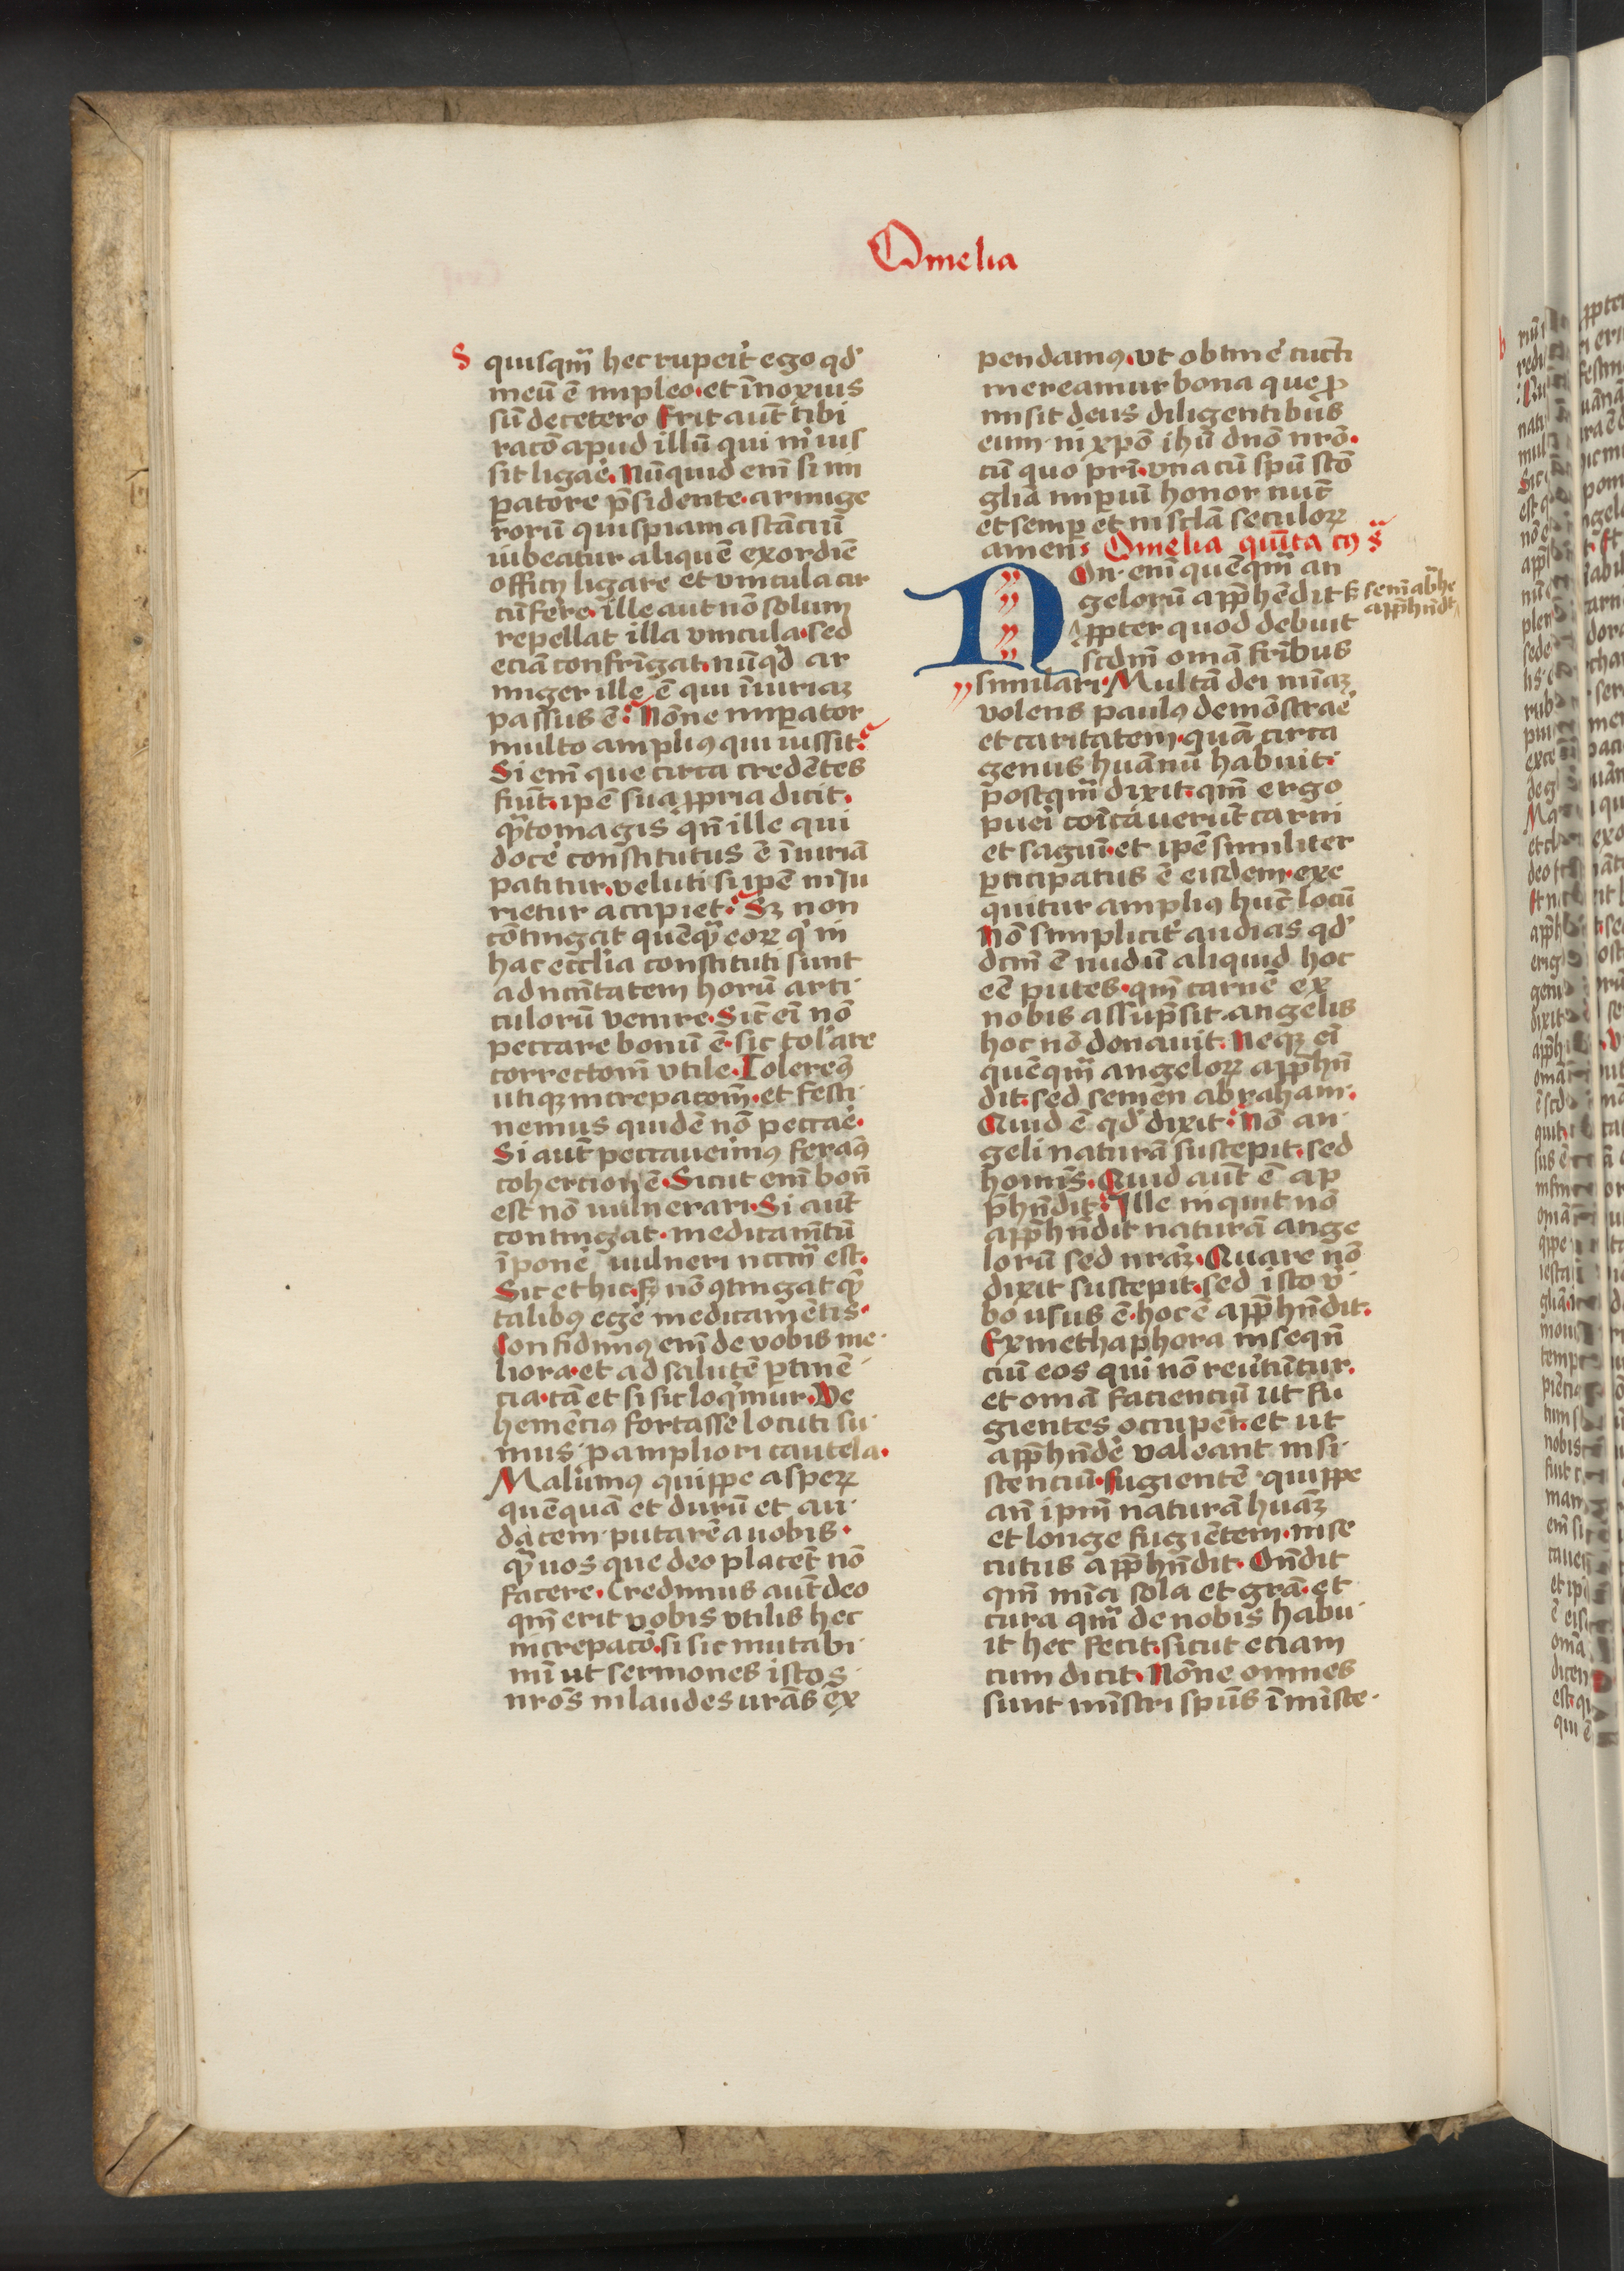 Omelia
S quisqm̃ hec ruperit ego qd'
meũ ẽ impleo et ĩnoxius
sũ de cetero Erit aut̃ tibi
racõ apud illũ qui m̃ ius
sit ligaẽ. Nũquid em̃ si im
patore p̃sidente. armige
rorũ quispiam astãciũ
iubeatur aliquẽ ex ordiẽ
officij ligare et vincula cir
cũferre. ille aut nõ solum
repellat illa vincula. sed
eciã confrĩgat. nũq'd ar
miger ille ẽ qui ĩiuriaȝ
passus ẽ: Nõne imperator
multo ampliꝰ qui iussit:
Si em̃ que circa credẽtes
fiũt. ipẽ sua ꝓpria dicit.
q̃ntomagis qñ ille qui
docẽ constitutus ẽ ĩiuriã
patitur. veluti si ipẽ iniu
rietur accipiet: Sȝ non
cõtingat quẽq̃ eoꝝ q' in
hac ecc̃lia constituti sunt
ad nccĩtatem horũ arti
culorũ venire. Sic̃ ei nõ
peccare bonũ ẽ. sic tol'are
correctõm vtile. Tolerem̃ꝰ
utiqȝ increpacõm̃. et festi
nemus quidẽ nõ peccaẽ.
Si aut̃ peccaueimꝰ feramꝰ
cohercionẽ. Sicut em̃ bonũ
est nõ uulnerari. Si aut̃
contingat. medicamẽtũ
ĩponẽ uulneri nccm̃ est.
Sic et hic. sȝ nõ ꝯtingat q̃
talibꝰ egẽ medicamẽtis.
Confidimꝰ em̃ de vobis me
liora. et ad salutẽ ꝑtinẽ
cia. tã et si sic loq̃mur. Ve
hemẽciꝰ fortasse locuti su
mus. ꝑ ampliori cautela.
Malumꝰ quippe asperꝝ
quẽquã et durũ et au
dacem putarẽ a uobis.
q̃ uos que deo placẽt nõ
facere. Credimus aut̃ deo
qm̃ erit vobis vtilis hec
increpacõ. si sic mutabi
mĩ ut sermones istos
nrõs in laudes urãs ex
pendamꝰ. vt obtinẽ cuncti
mereamur bona que ꝓ
misit deus diligentibus
eum. in xp̃o ihũ dnõ nrõ.
cũ quo pri. vna cũ spũ sctõ
gliã imperiũ honor nũc̃
et semꝑ et in sctã seculoꝝ
amen: Omelia quĩta cij s̃
Non em̃ quẽqm̃ an
gelorũ apphẽdit s̃ semẽ abrhe
apphñdt
ꝓpter quod debuit
scdm̃ omã fr̃ibus
similari. Multã dei mĩaȝ
volens paulꝰ demõstraẽ
et caritatem. quã circa
genus huãnũ habuit:
postqm̃ dixit. qm̃ ergo
puei coĩcãuerũt carni
et saguĩ. et ipẽ similiter
ꝑticipatus ẽ eisdem. exe
quitur ampliꝰ hũc locũ
Nõ simplicit' audias qd'
dcm̃ ẽ nudũ aliquid hoc
eẽ putes. qm̃ carnẽ ex
nobis assũpsit. angelis
hoc nõ donauit. Neqȝ ei
quẽqm̃ angeloꝝ apphñ
dit. sed semen abraham.
Quid ẽ qd' dixit: Nõ an
geli naturã suscepit. sed
homis. Quid aut̃ ẽ ap
phñdit: Ille inquit nõ
apphñdit naturã ange
lorũ sed nrãȝ. Quare nõ
dixit suscepit. sed isto v'
bo usus ẽ. hoc ẽ apphñdit.
Ex methaphora inseqñ
ciũ eos qui nõ reuertũtur.
et omã faciencium ut fu
gientes occupẽt. et ut
apphñdẽ valeant insi
stenciũ. fugientẽ quippe
añ ipm̃ naturã huãȝ
et longe fugiẽtem. inse
cutus apphñdit. Oñdit
qm̃ mĩa sola et grã. et
cura qm̃ de nobis habu
it hec fecit. sicut etiam
cum dicit. Nõne omnes
sunt mĩstri spũs ĩ mĩste